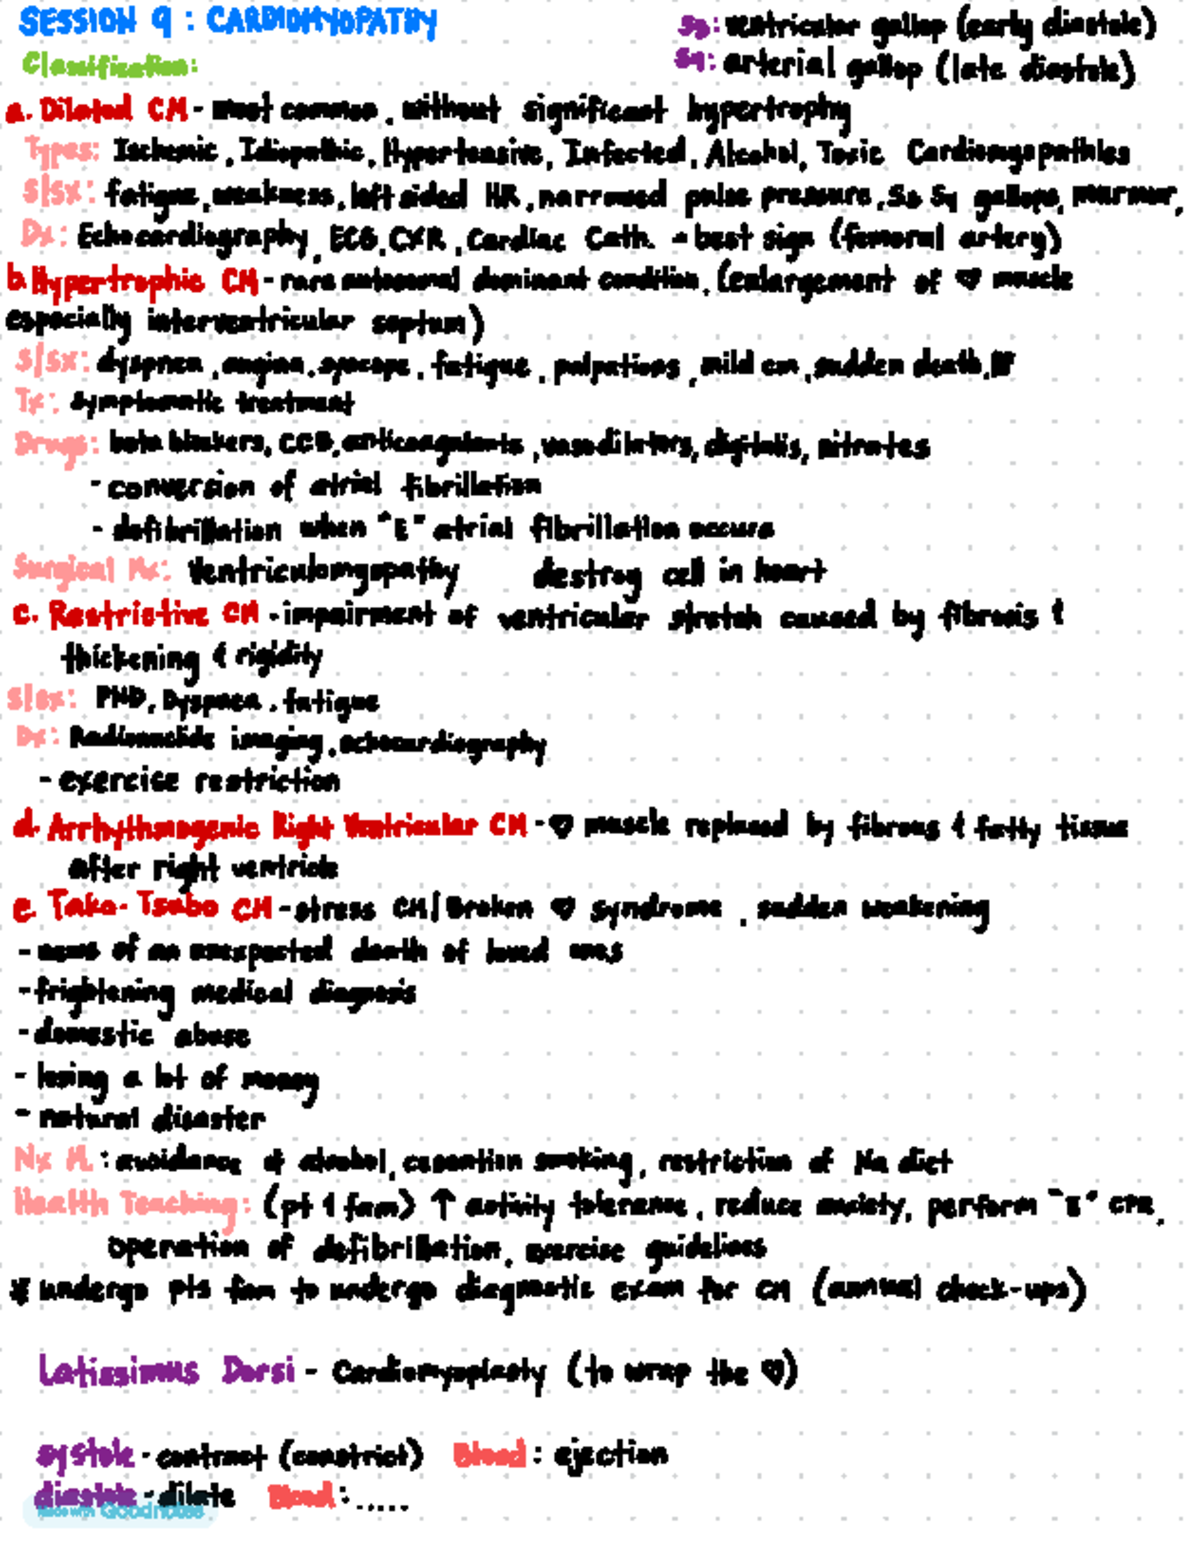 SESSION 9 : CARDIOMYOPATHY
S3: ventricular gallop (early diastole)
Classification:
S4: arterial gallop (late diastole)
a. Dilated CM - most common, without significant hypertrophy
Types: Ischemic, Idiopathic, Hypertensive, Infected, Alcohol, Toxic Cardiomyopathies
S/Sx: fatigue, weakness, left sided HR, narrowed pulse pressure, S3 S4 gallops, murmur,
Dx: Echocardiography, ECG, CXR, Cardiac Cath. - best sign (femoral artery)
b. Hypertrophic CM - rare autosomal dominant condition, (enlargement of ♡ muscle
especially interventricular septum)
S/Sx: dyspnea, angina, syncope, fatigue, palpations, mild cm, sudden death, HF
Tx: symptomatic treatment
Drugs: beta blockers, CCB, anticoagulants, vasodilators, digitalis, nitrates
- conversion of atrial fibrillation
- defibrillation when "E" atrial fibrillation occurs
Surgical Mx: Ventriculomyopathy destroy cell in heart
c. Restrictive CM - impairment of ventricular stretch caused by fibrosis &
thickening & rigidity
S/Sx: PND, Dyspnea, fatigue
Dx: Radionuclide imaging, echocardiography
- exercise restriction
d. Arrhythmogenic Right Ventricular CM - ♡ muscle replaced by fibrous & fatty tissue
after right ventricle
e. Tako-Tsubo CM - stress CM/Broken ♡ syndrome, sudden weakening
- news of an unexpected death of loved ones
- frightening medical diagnosis
- domestic abuse
- losing a lot of money
- natural disaster
Nx M.: avoidance of alcohol, cessation smoking, restriction of Na diet
Health Teaching: (pt & fam) ↑ activity tolerance, reduce anxiety, perform "E" CPR,
operation of defibrillation, exercise guidelines
* undergo pts fam to undergo diagnostic exam for CM (annual check-ups)
Latissimus Dorsi - Cardiomyoplasty (to wrap the ♡)
systole - contract (constrict) Blood: ejection
diastole - dilate Blood: .....
Made with Goodnotes